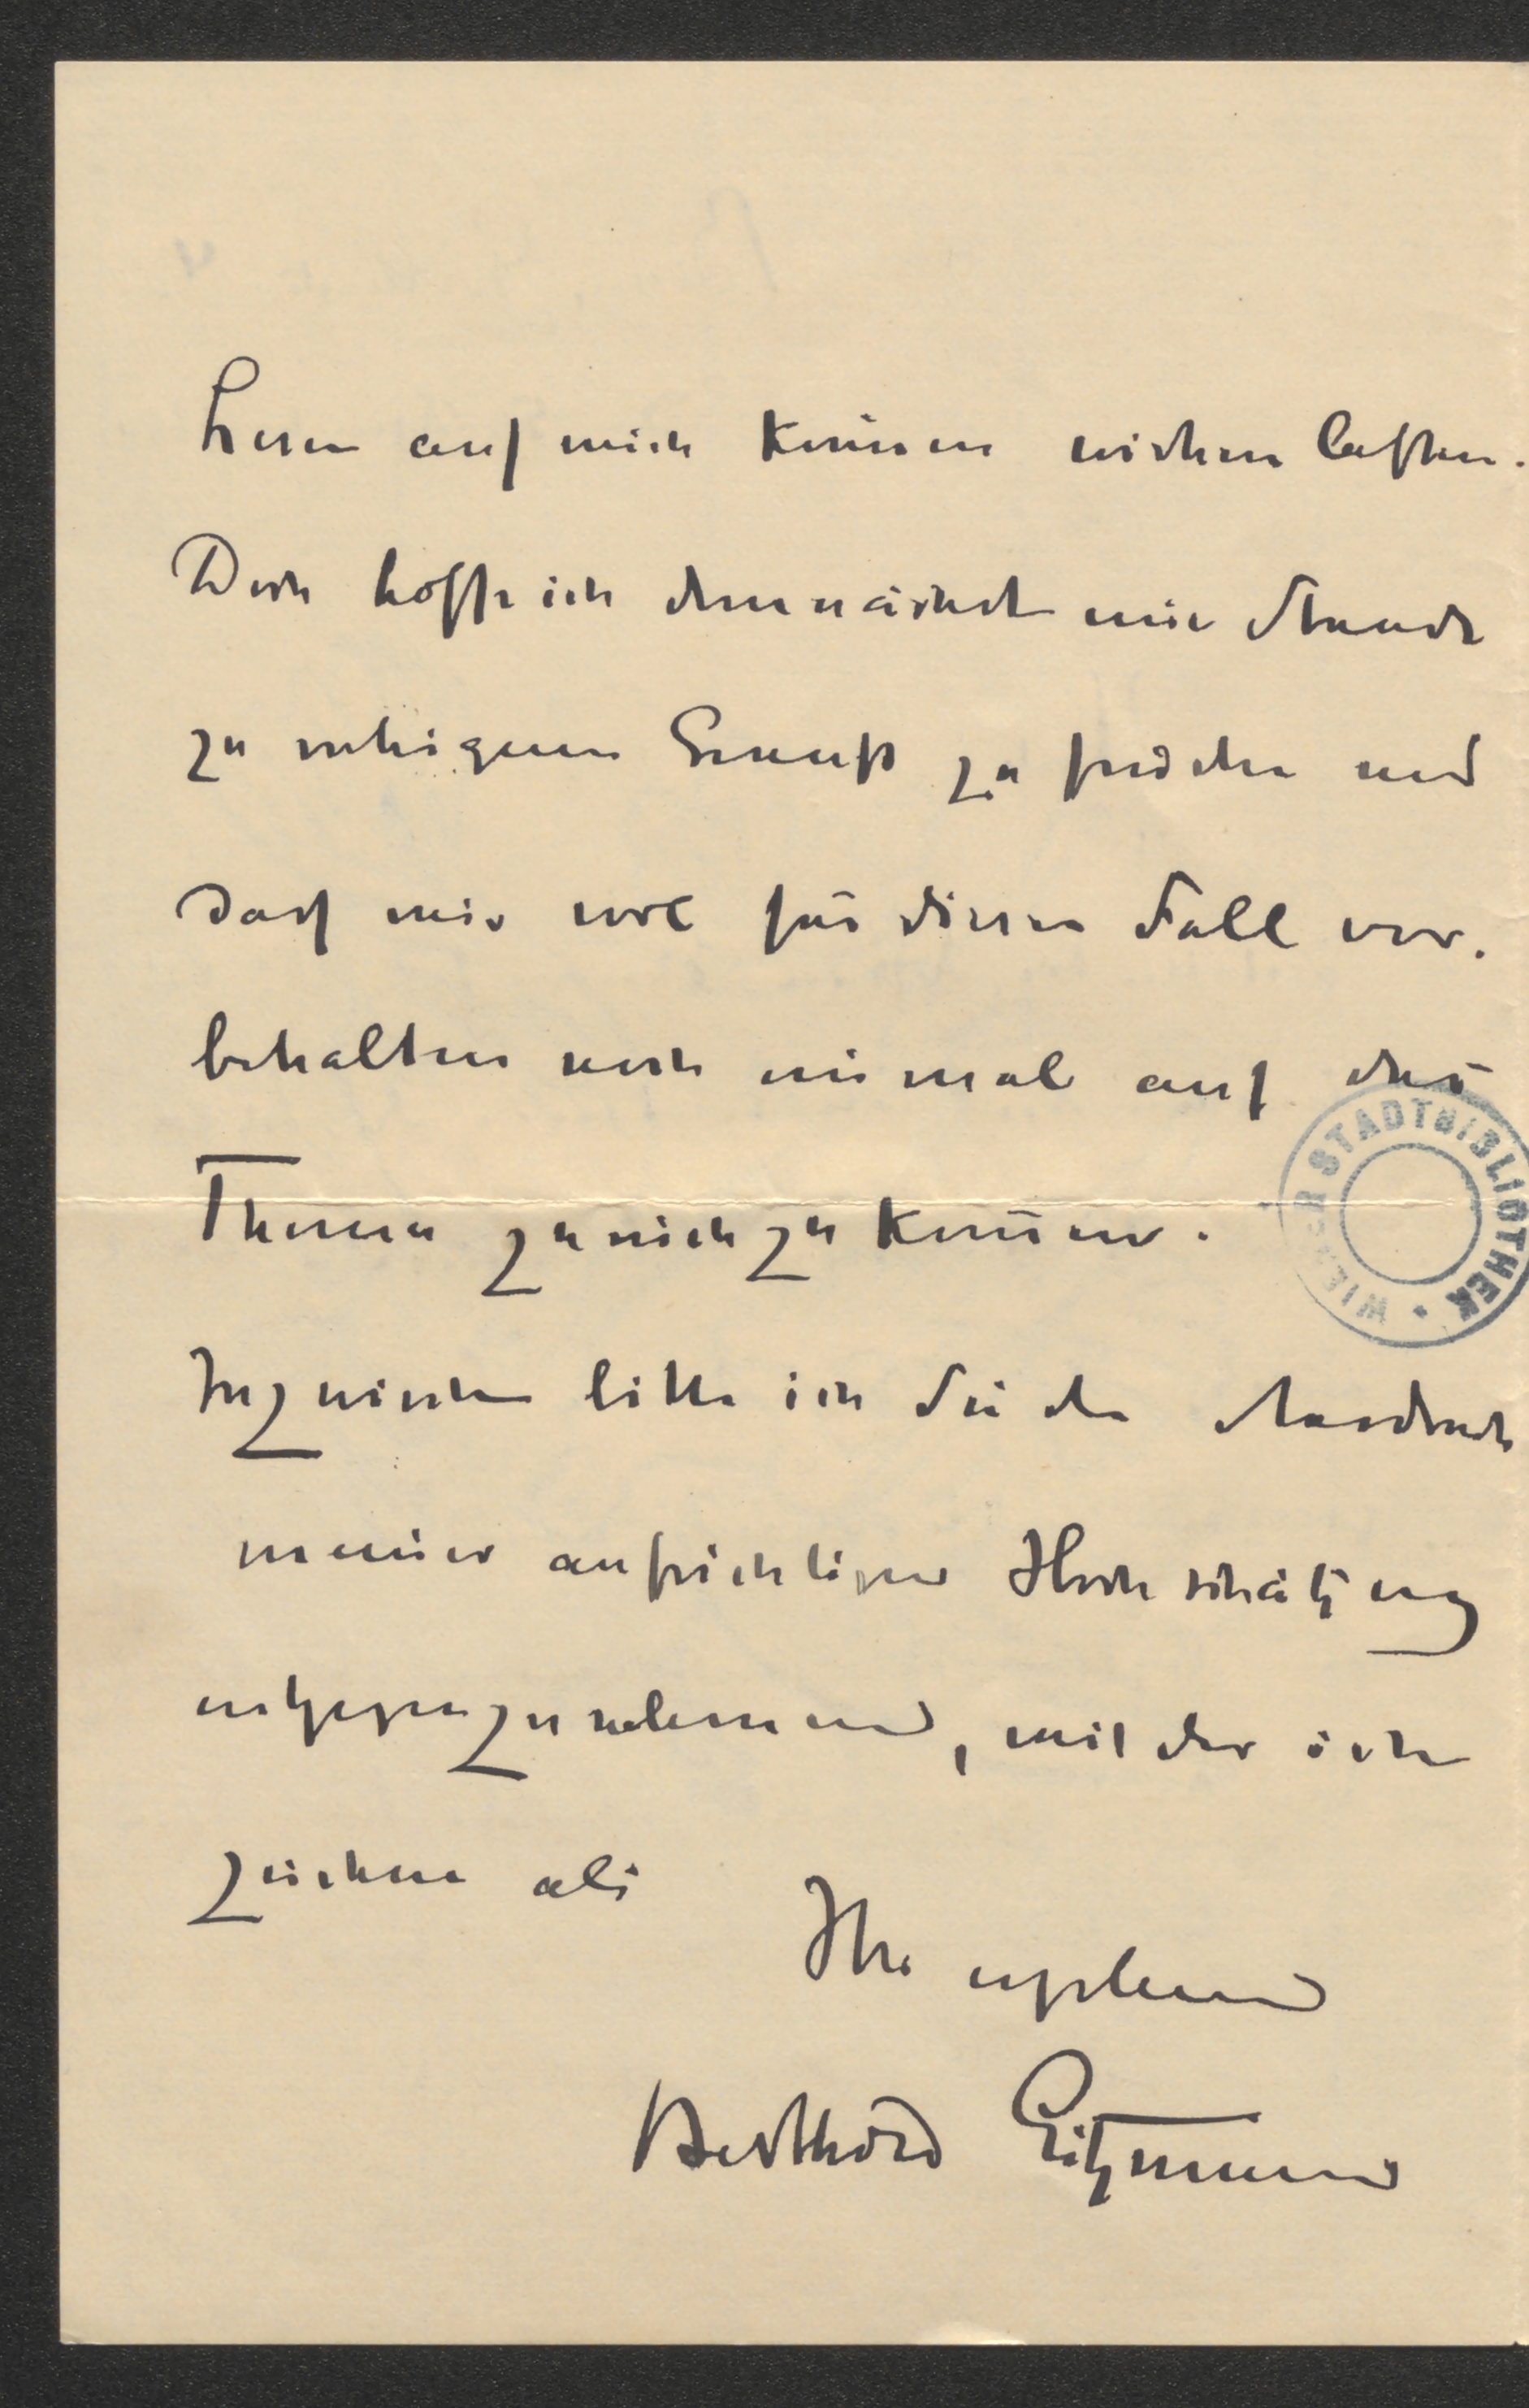 Lesen auf mich können wirken lassen.
Doch hoffe ich demnächst eine Stunde
zu ruhigem Genuß zu finden und
darf mir wol für diesen Fall vor-
behalten noch einmal auf das
Thema zurückzukommen.
Inzwischen bitte ich Sie den Ausdruck
meiner aufrichtigen Hochschätzung
entgegenzunehmen, mit der ich
zeichne als
Ihr ergebener
Berthold Litzmann
WIENER STADTBIBLIOTHEK